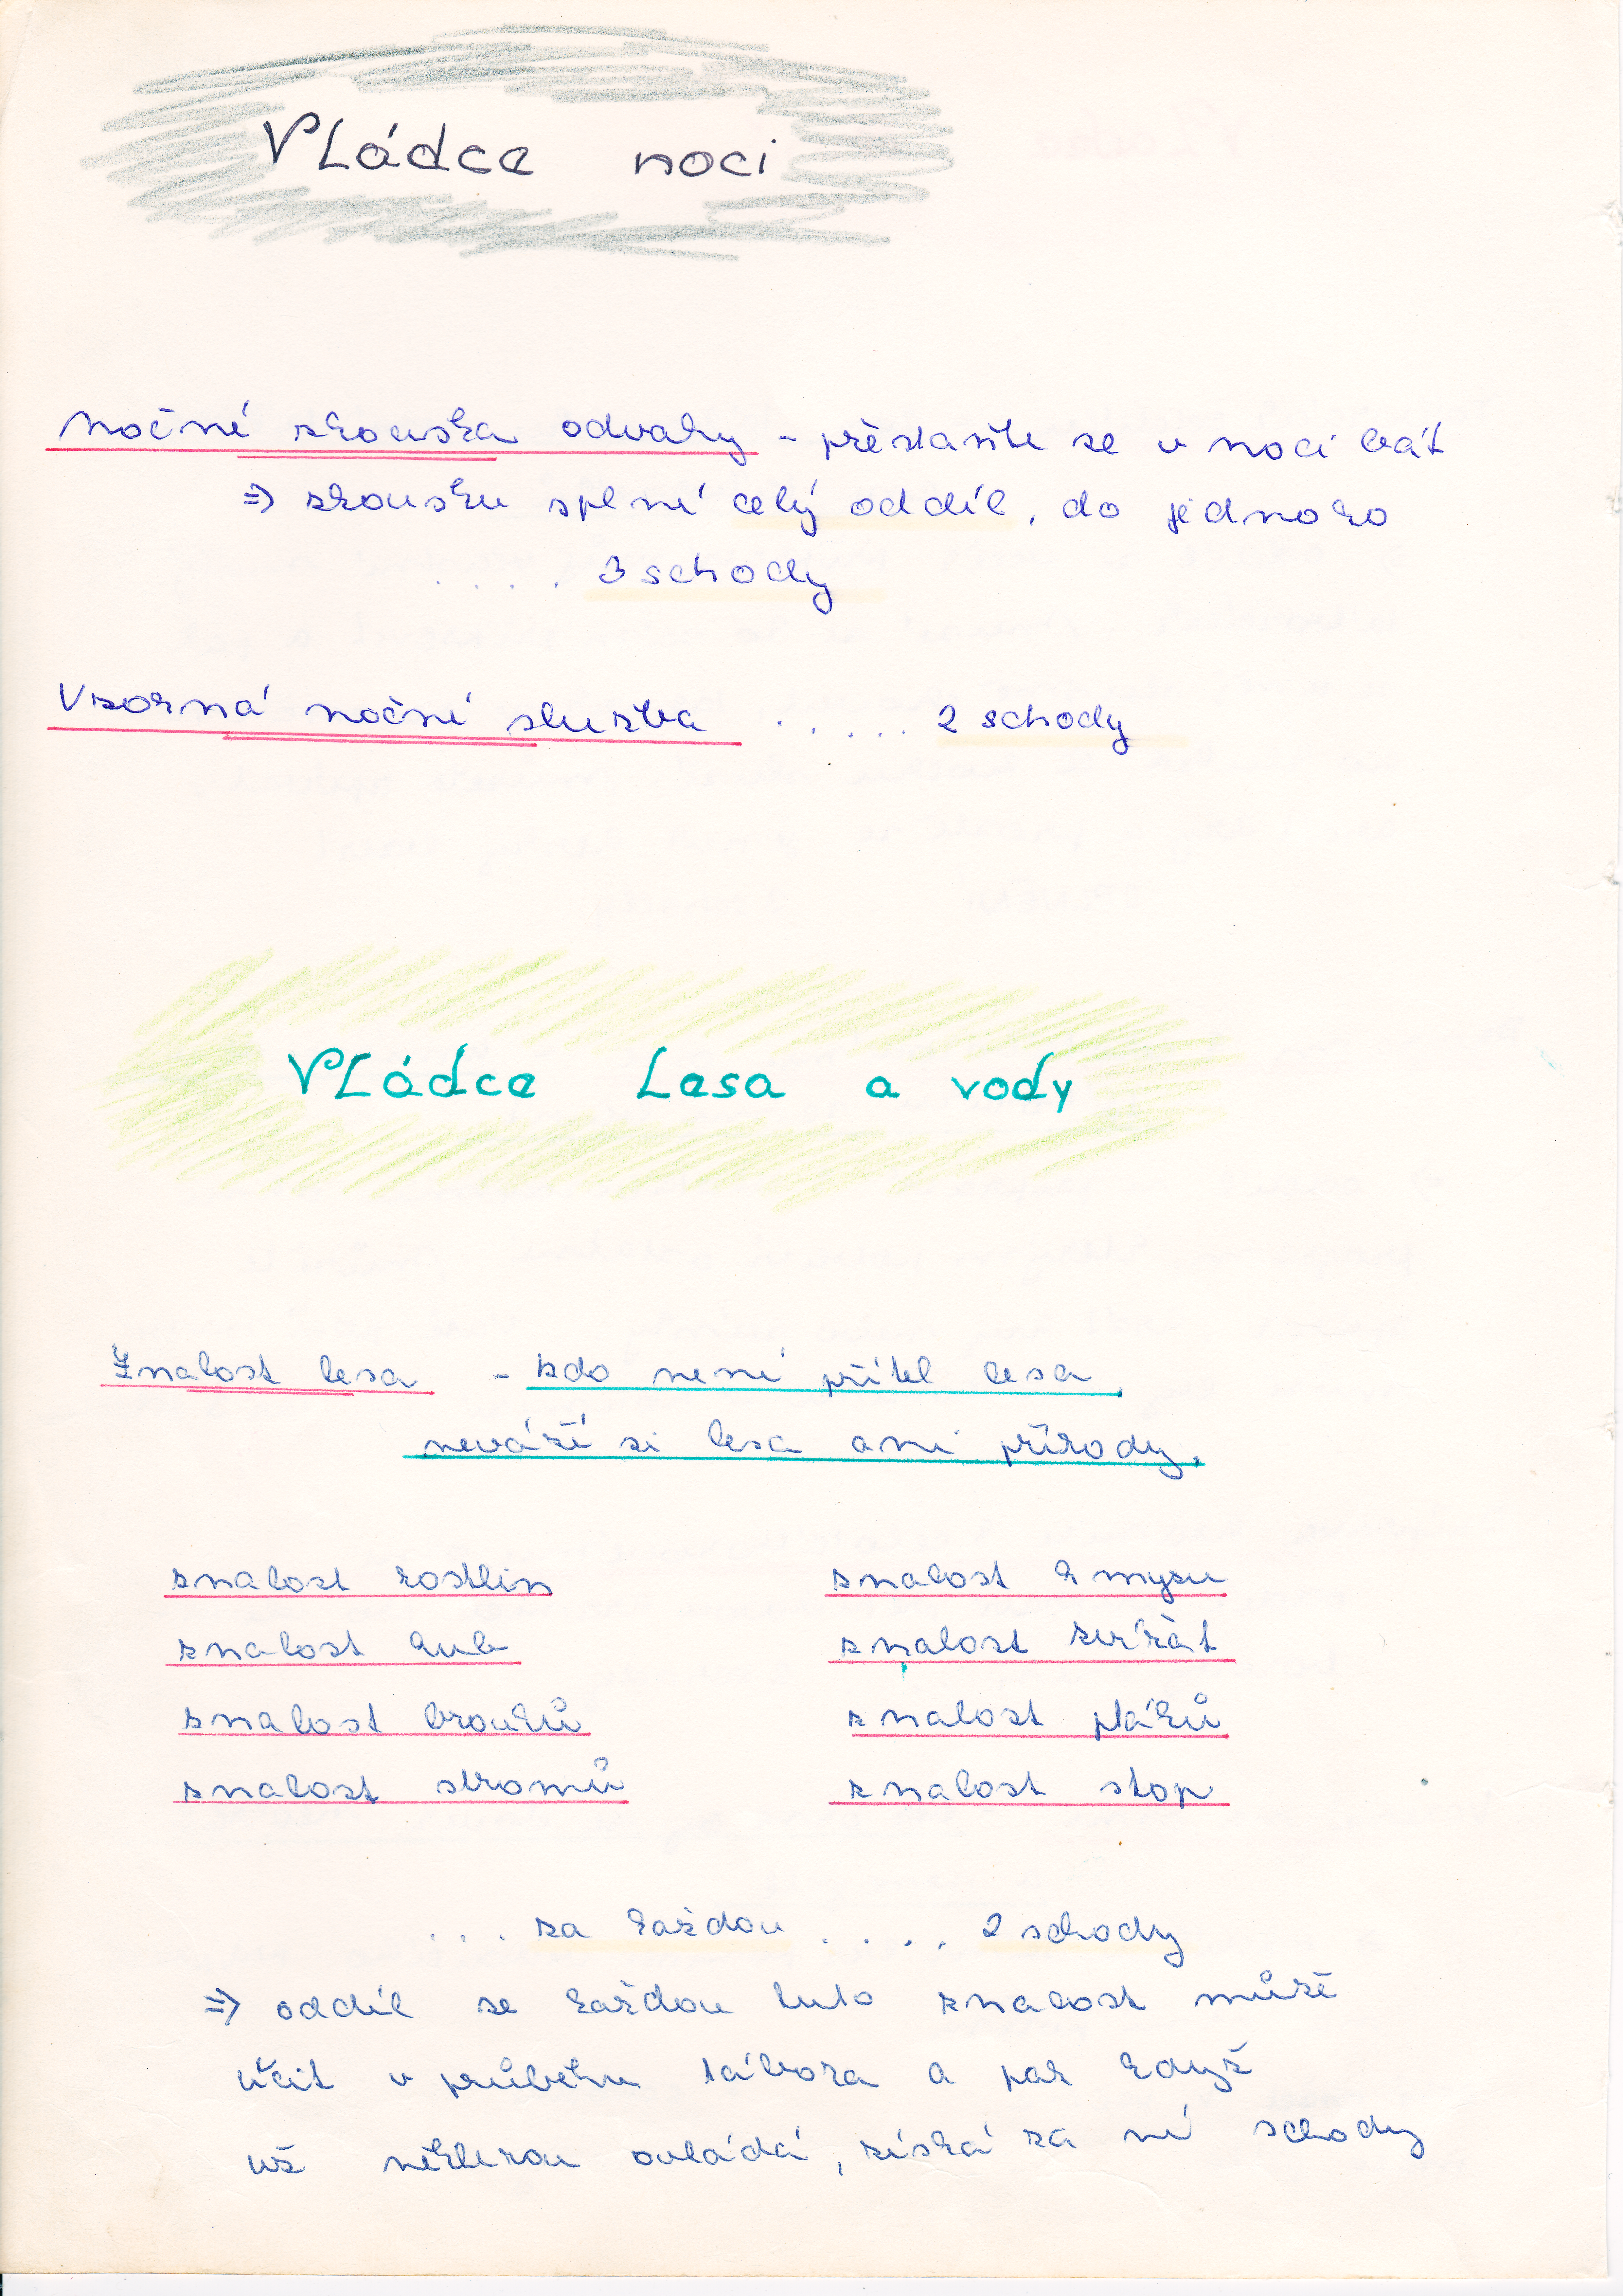 Vládce noci
Noční zkouška odvahy - přestaňte se v noci bát
⇒ zkoušku splní celý oddíl, do jednoho
.... 3 schody
Vzorná noční služba ..... 2 schody
Vládce lesa a vody
Znalost lesa - kdo není přítel lesa,
neváží si lesa ani přírody.
znalost rostlin znalost hmyzu
znalost hub znalost zvířat
znalost brouků znalost ptáků
znalost stromů znalost stop
... za každou .... 2 schody
⇒ oddíl se každou tuto znalost může
učit v průběhu tábora a pak když
už některou ovládá, získá za ní schody